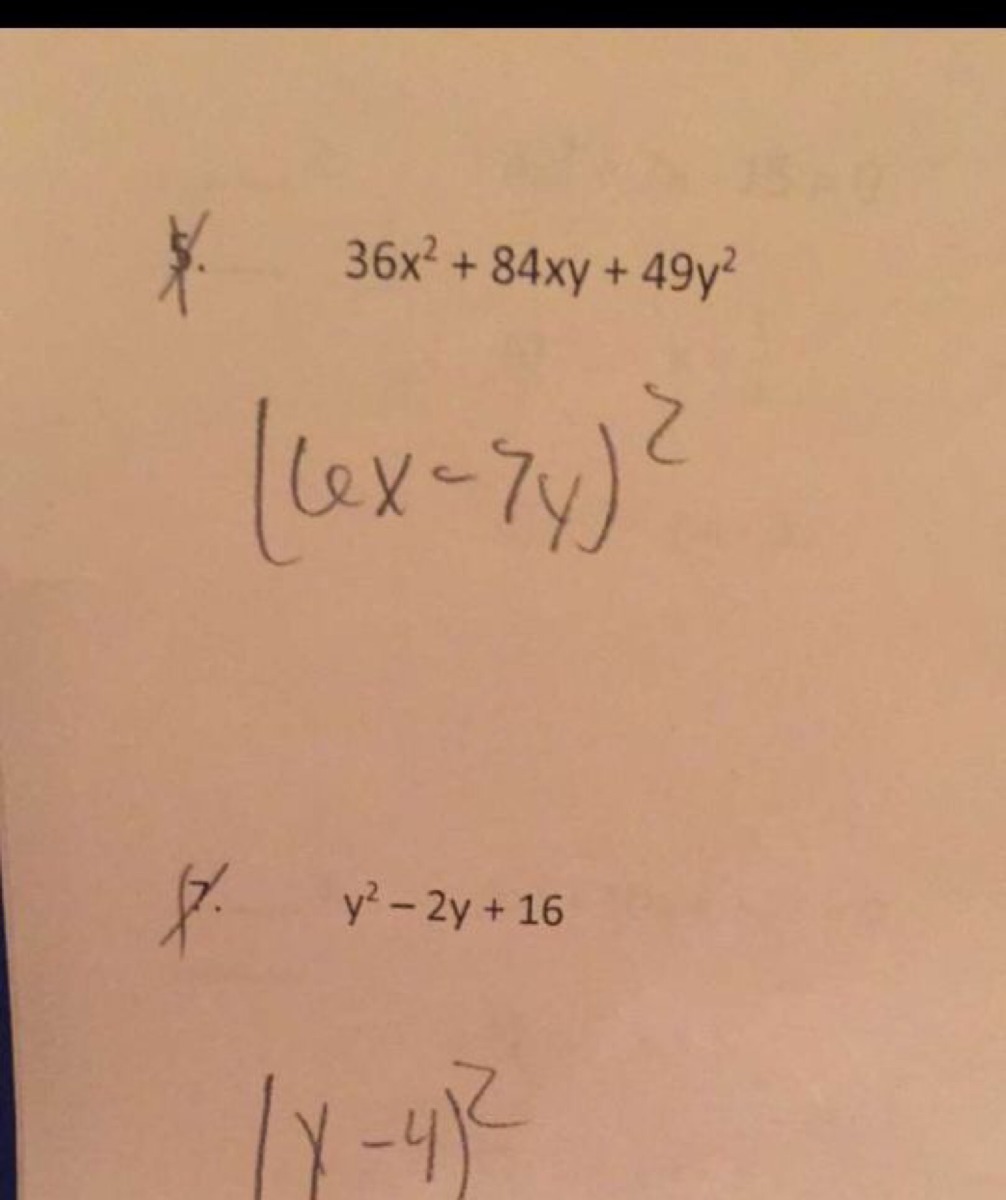 5. 36x² + 84xy + 49y²
(6x-7y)²
7. y² – 2y + 16
(y-4)²